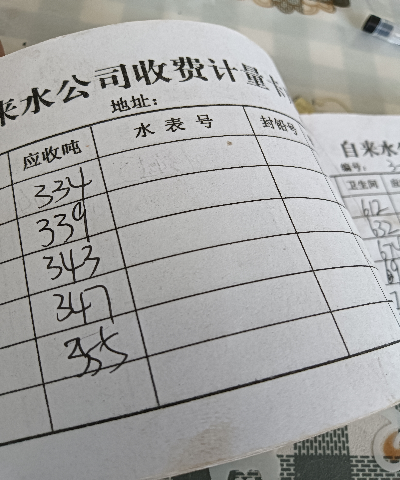 来水公司收费计量卡
地址：
应收吨 水表号 封铅号
334
339
343
347
355
自来水
编号：
卫生间
612
632